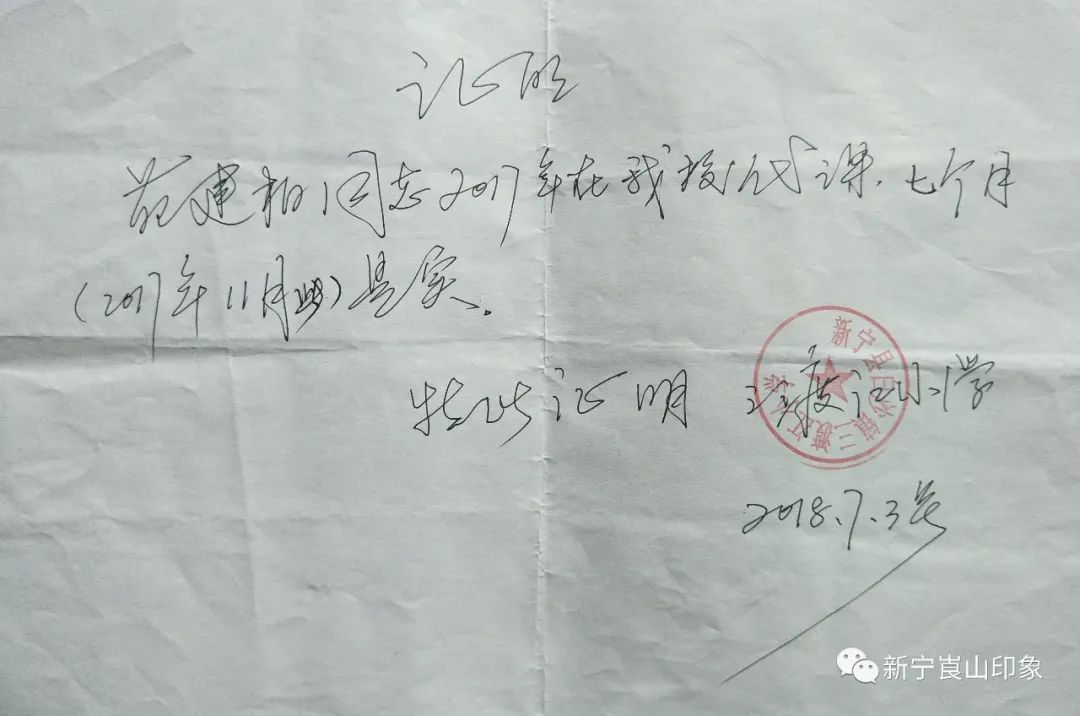 证明
范建柏同志2017年在我校代课七个月
(2017年11月始)是实.
特此证明 三渡江小学
新宁县白沙镇三渡江小学
2018.7.3号
新宁崀山印象